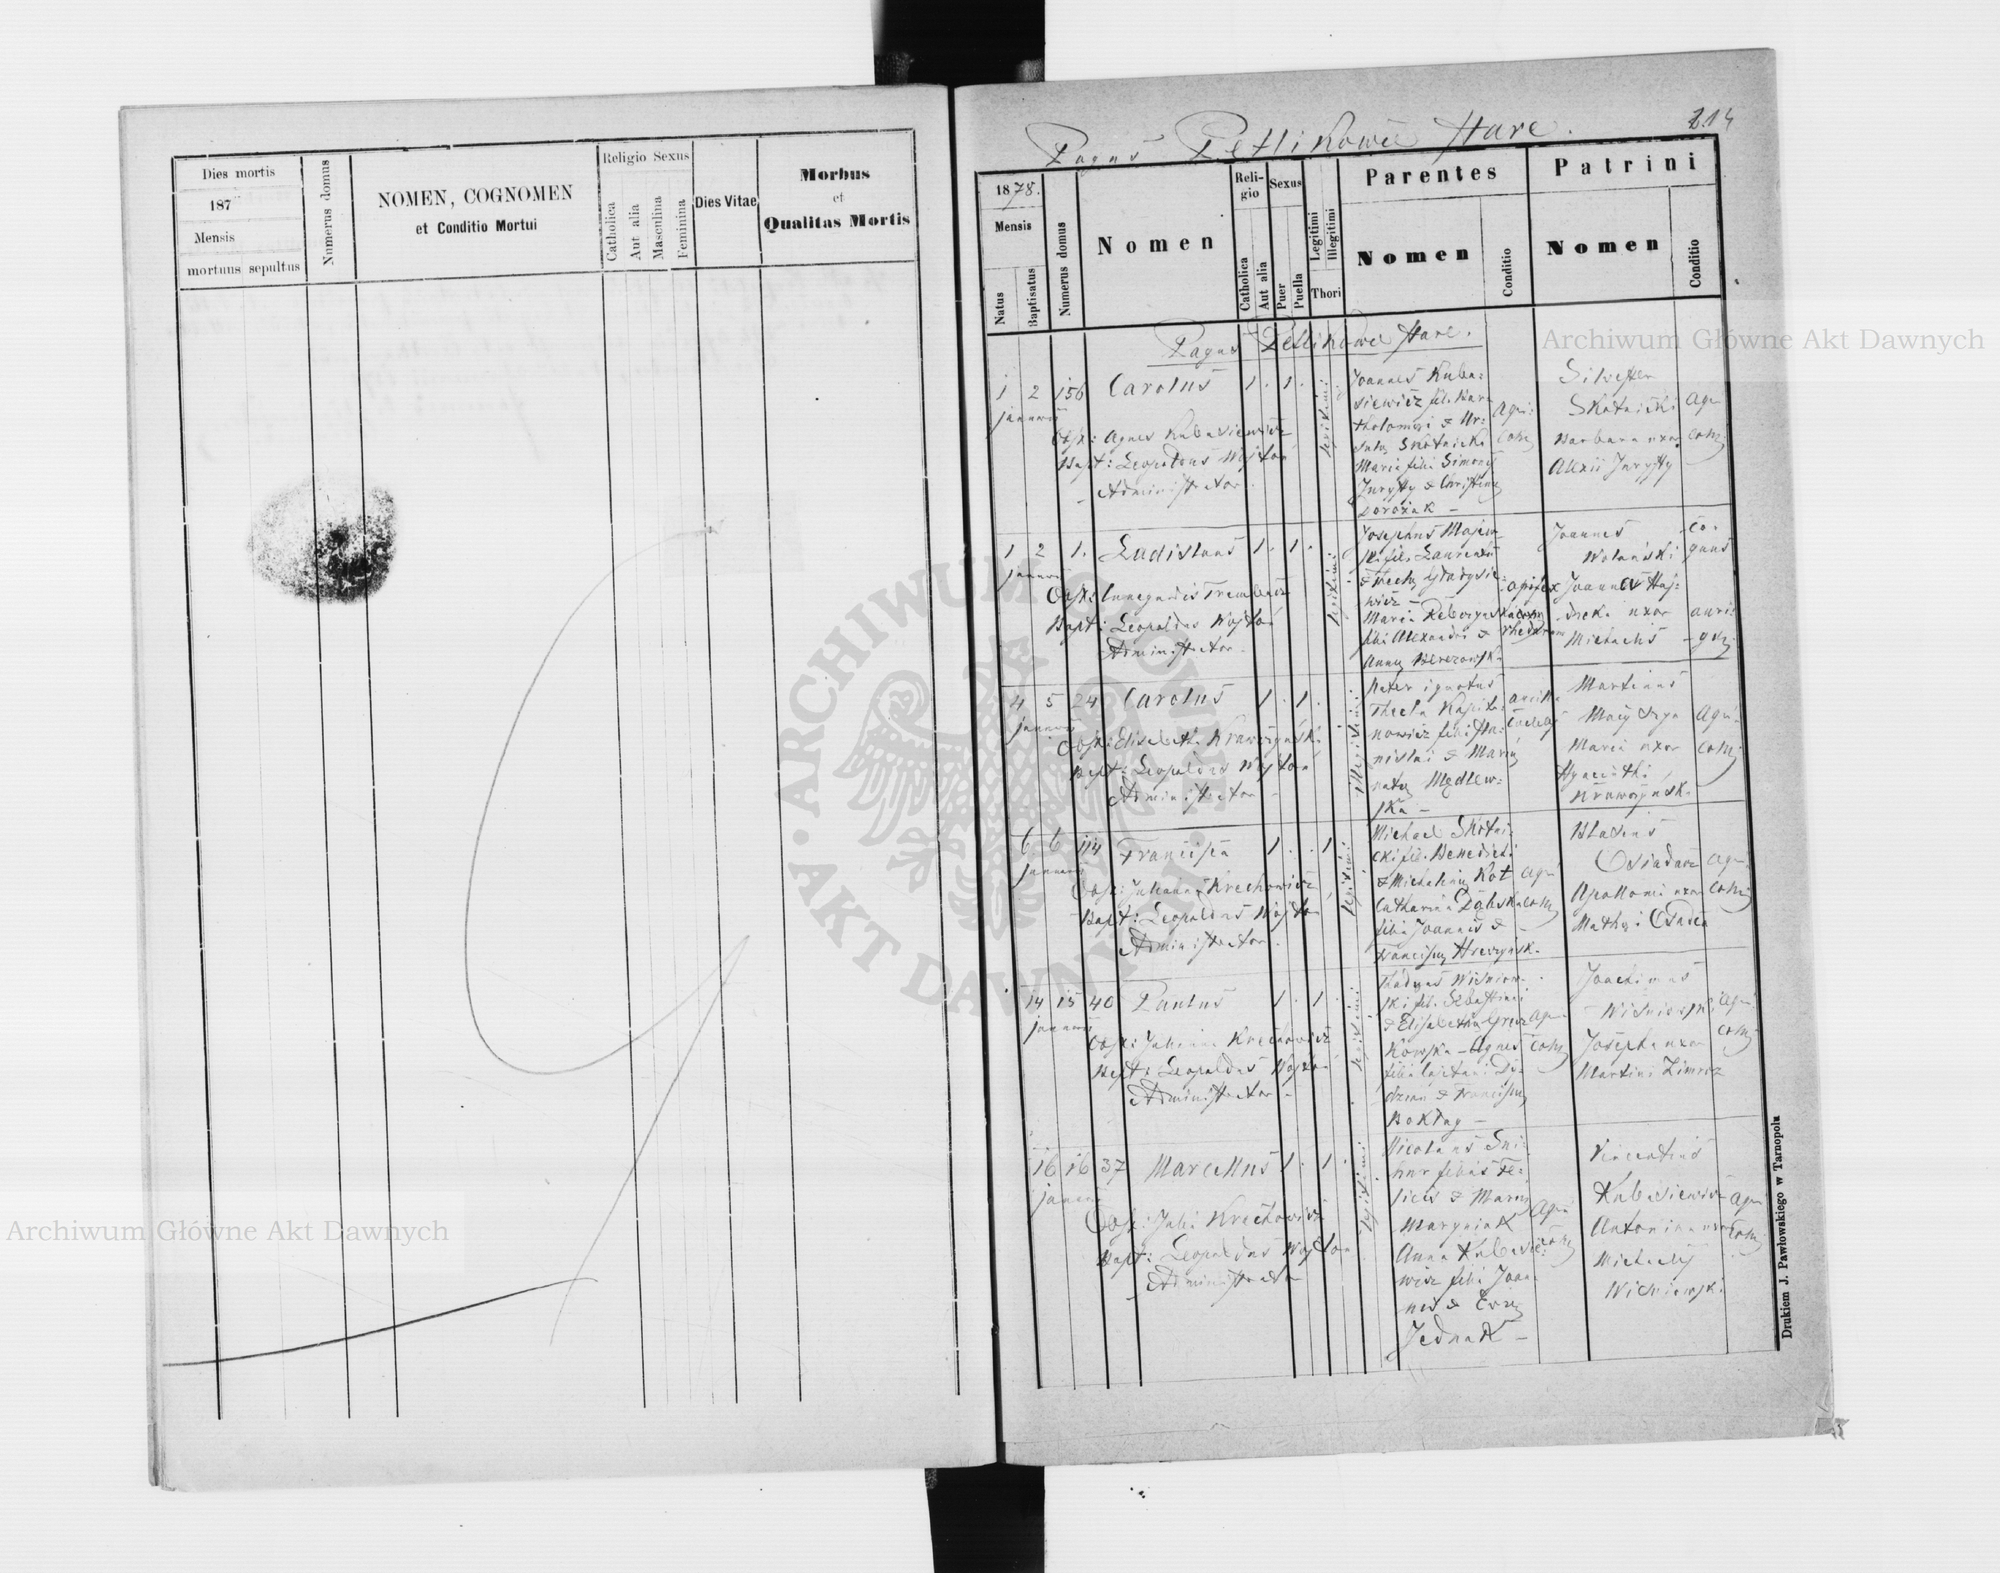 Dies mortis
187
Mensis
mortuus sepultus
Numerus domus
NOMEN, COGNOMEN
et Conditio Mortui
Religio Sexus
Catholica
Aut alia
Masculina
Feminina
Dies Vitae
Morbus
et
Qualitas Mortis
214
Pagus Petlikowce Stare.
1878.
Mensis
Natus
Baptisatus
Numerus domus
Nomen
Reli-
gio
Catholica
Aut alia
Sexus
Puer
Puella
Legitimi
Illegitimi
Thori
Parentes
Nomen
Conditio
Patrini
Nomen
Conditio
Pagus Petlikowce Stare.
1 2 156 Carolus 1 . 1 .
januarii
Obst: Agnes Kubasiewicz
Bapt: Leopoldus Wojtoń
Administrator
Legitimi
Joannes Kuba-
siewicz fil. Bar-
tholomaei &
Skotnicka
Maria filia Simonis
Jurysty & Christinae
Dorożak –
Agri-
colae
Silvester
Skotnicki
Barbara uxor
Alexii Jurysty
Agri
colae
1 2 1. Ladislaus 1 . 1 .
januarii
Obst: Cunegundis Trembacz
Bapt: Leopoldus Wojtoń
Administrator
Legitimi
Josephus Majew-
ski fil. Laurentii
& Theclae
wicz
Maria
filia Alexandri &
Annae Berezowsk-
Joannes
Wolański
Joanna
uxor
Michaelis
Co-
quus
auri-
gae
4 5 24 Carolus 1 . 1 .
januarii
Obst: Elisabetha Krawczyńsk-
Bapt: Leopoldus Wojtoń
Administrator –
Illegitimi
Pater ignotus
Thecla Kapita-
nowicz filia Sta-
nislai & Mariae
natae Mędlew-
ska –
Martinus
Maria uxor
Hyacinthi
Krawczyńsk-
Agri-
colae
6 6 114 Francisca 1 . . 1
januarii
Obst: Julianna Krechowicz
Bapt: Leopoldus Wojtoń
Administrator
Legitimi
Michael Skotni-
cki fil. Benedicti
& Michalinae Kot
Catharina
filia Joannis &
Franciscae
Agri
colae
Blasius
Osiadacz
Apollonia uxor
Mathaei
Agri
colae
14 15 40 Paulus 1 . 1 .
januarii
Obst: Julianna Krechowicz
Bapt: Leopoldus Wojtoń
Administrator –
Legitimi
Thadeus Wiśniow-
ski fil. Sebastiani
& Elisabethae
kowska – Agnes
filia Cajetani
& Franciscae
Agri-
colae
Joachimus
Wiśniowski
Josepha uxor
Martini
Agri
colae
16 16 37 Marcellus 1 . 1 .
januarii
Obst: Julia Krechowicz
Bapt: Leopoldus Wojtoń
Administrator
Legitimi
Nicolaus
filius Fe-
licis & Mariae
Maryniak
Anna Kubasie-
wicz filia Joan-
nis & Evae
Jednak –
Agri
colae
Vincentius
Kubasiewicz
Antonina uxor
Michaelis
Wiśniowski
Agri
colae
Drukiem J. Pawłowskiego w Tarnopolu
Archiwum Główne Akt Dawnych
Archiwum Główne Akt Dawnych
ARCHIWUM GŁÓWNE AKT DAWNYCH